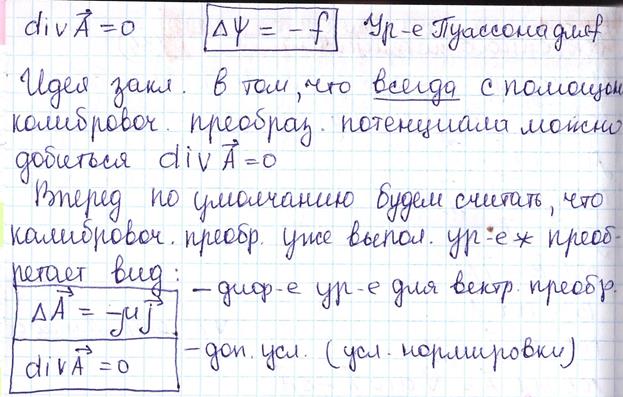 div A⃗ = 0   Δψ = -f   Ур-е Пуассона для f
Идея закл. в том, что всегда с помощью
калибровоч. преобраз. потенциала можно
добиться div A⃗ = 0
Вперед по умолчанию будем считать, что
калибровоч. преобр. уже выпол. ур-е * приоб-
ретает вид:
ΔA⃗ = -μj⃗ - диф-е ур-е для вектр. преобр.
div A⃗ = 0 - доп. усл. (усл. нормировки)